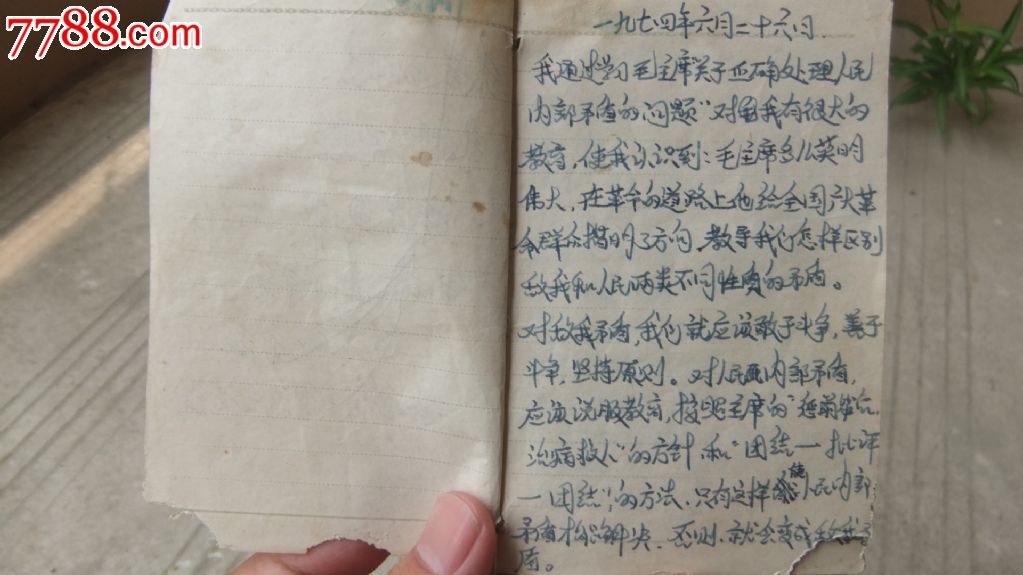 7788.com
一九七四年六月二十六日
我通过学习毛主席"关于正确处理人民
内部矛盾的问题"对我有很大的
教育,使我认识到:毛主席多么英明
伟大,在革命的道路上他给全国广大革
命群众指明了方向,教导我们怎样区别
敌我和人民两类不同性质的矛盾。
对敌我矛盾,我们就应该敢于斗争,善于
斗争,坚持原则。对人民内部矛盾,
应该说服教育,按照主席的"惩前毖后,
治病救人"的方针和"团结一批评
一团结"的方法,只有这样能使人民内部
矛盾才能解决,否则,就会变成敌我矛
盾。